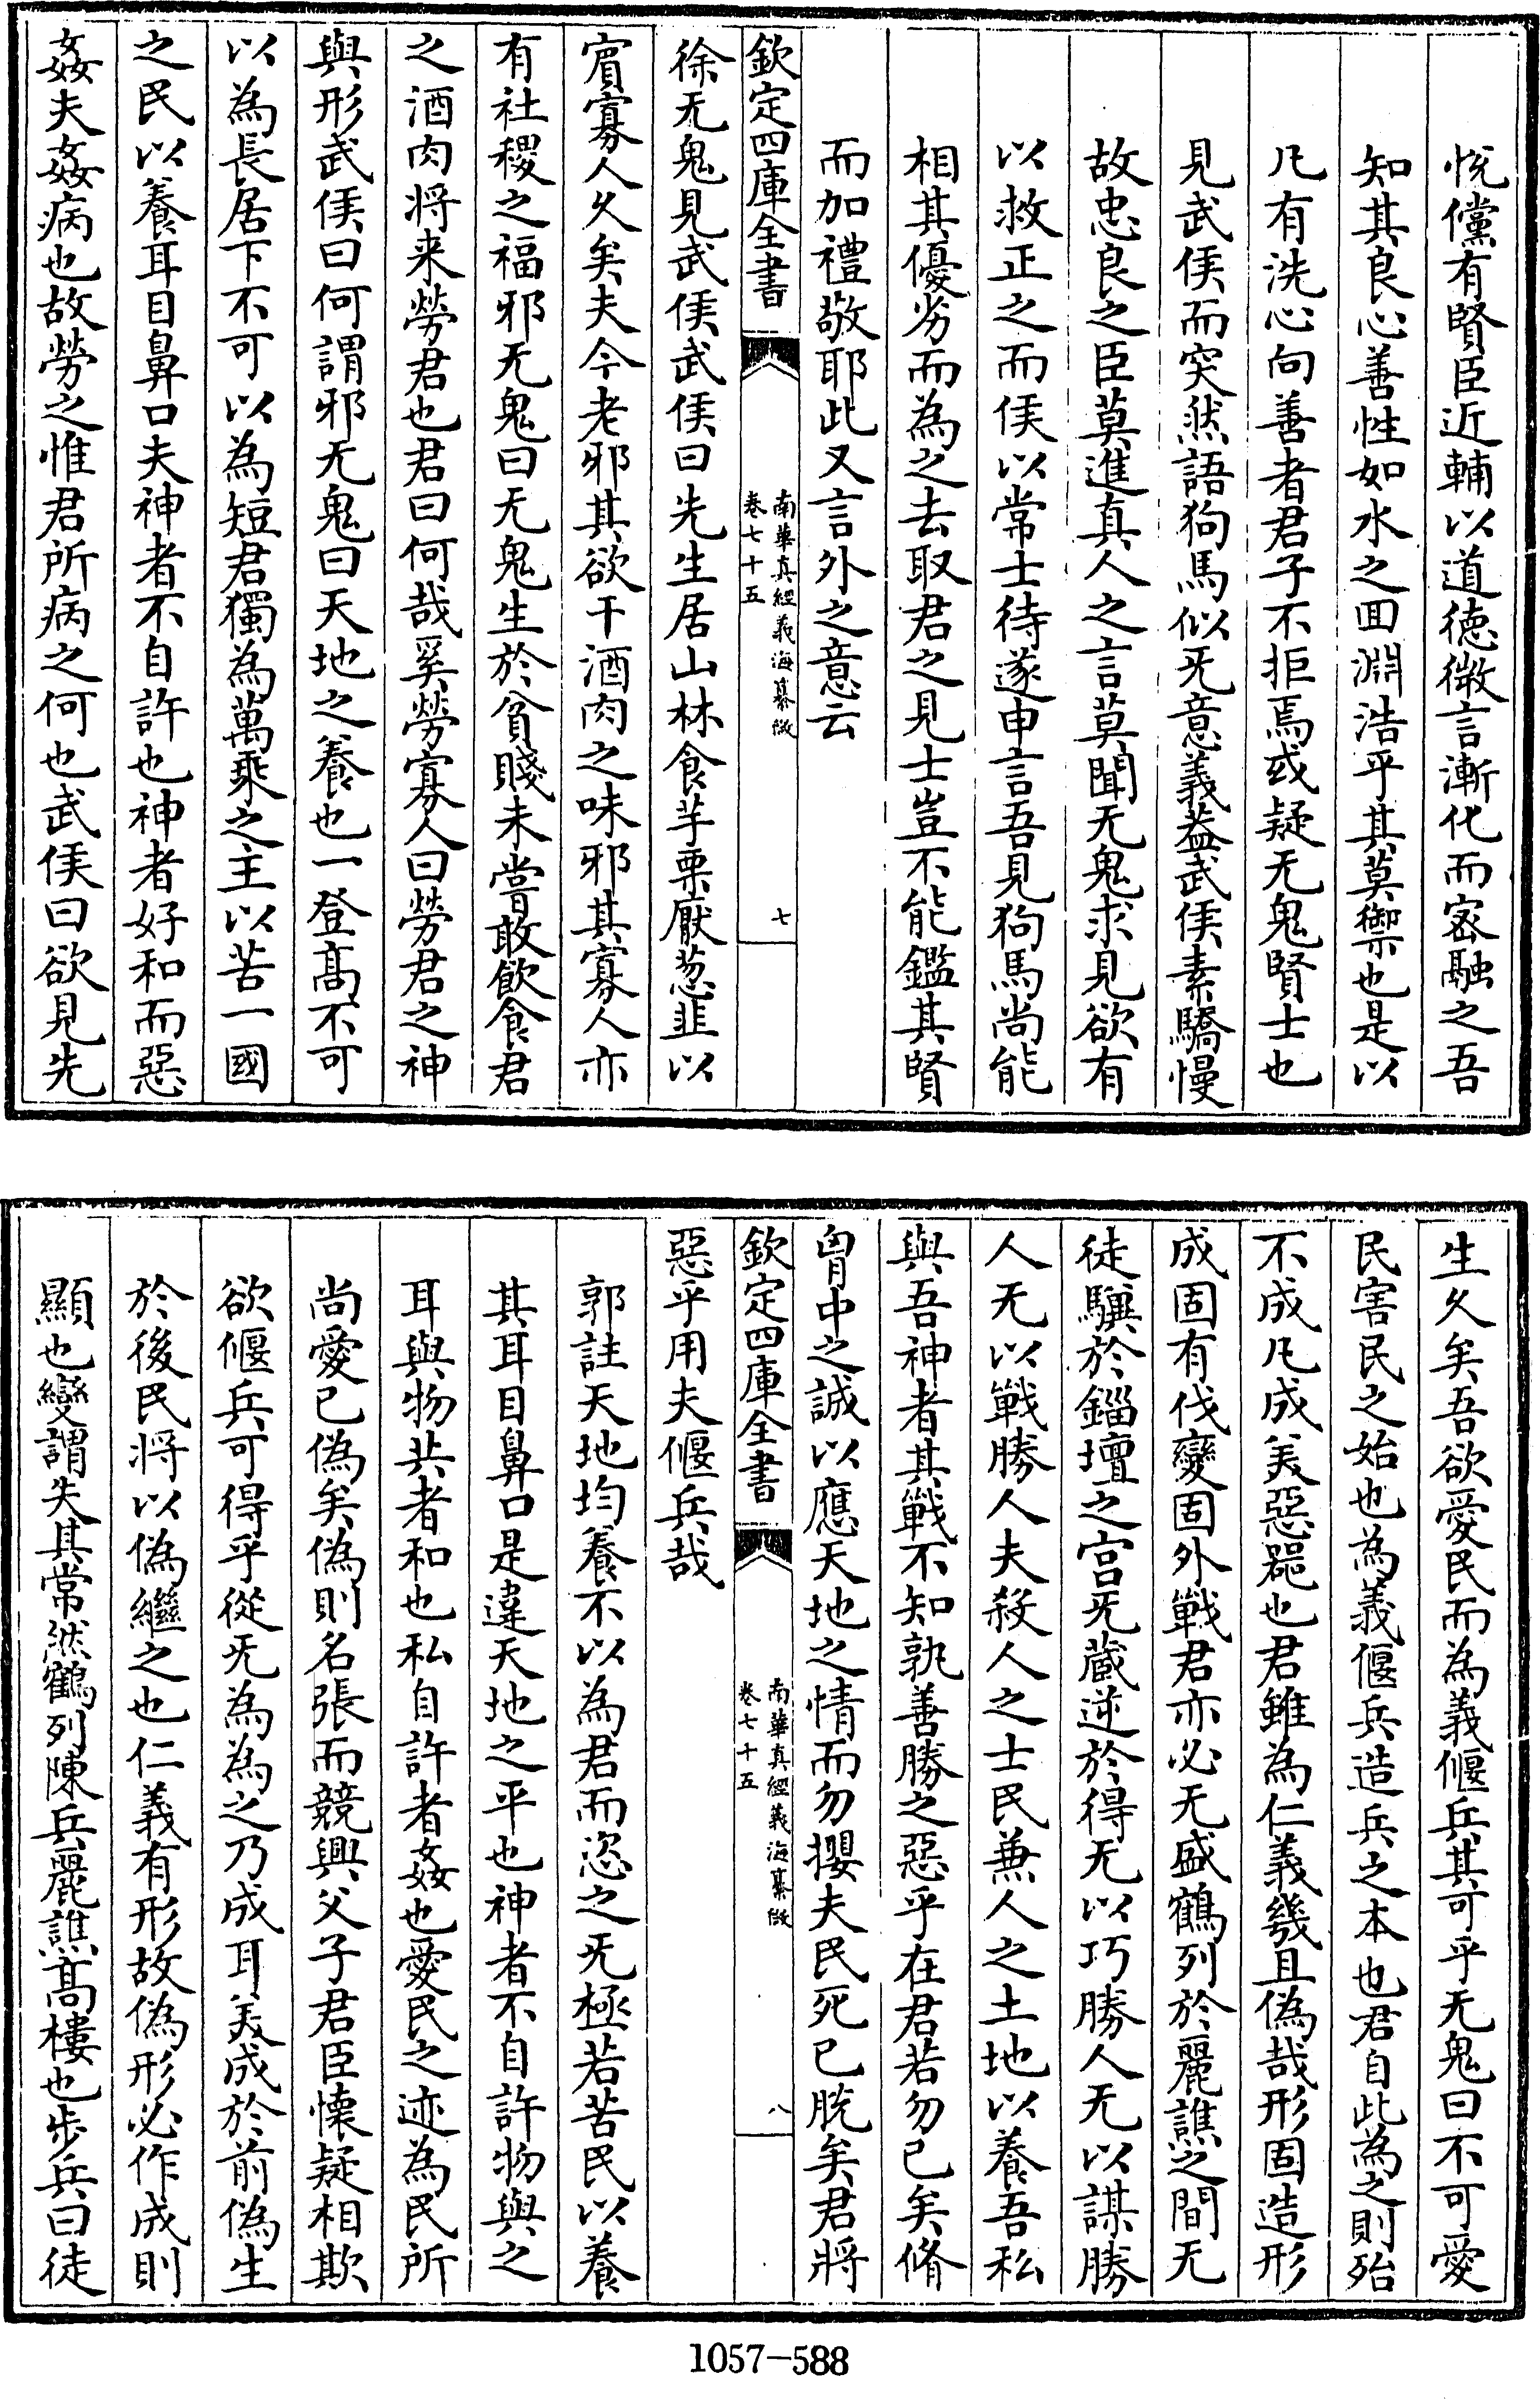 悅儻有賢臣近輔以道德微言漸化而宻融之吾
知其良心善性如水之囬淵浩乎其莫禦也是以
凡有洗心向善者君子不拒焉或疑无鬼賢士也
見武侯而突然語狗馬似无意義葢武侯素驕慢
故忠良之臣莫進真人之言莫聞无鬼求見欲有
以救正之而侯以常士待遂申言吾見狗馬尚能
相其優劣而為之去取君之見士豈不能鑑其賢
而加禮敬耶此又言外之意云
欽定四庫全書
南華真經義海纂微
卷七十五
七
徐无鬼見武侯武侯曰先生居山林食芋栗厭葱韭以
賔寡人久矣夫今老邪其欲干酒肉之味邪其寡人亦
有社稷之福邪无鬼曰无鬼生於貧賤未嘗敢飲食君
之酒肉将来勞君也君曰何哉奚勞寡人曰勞君之神
與形武侯曰何謂邪无鬼曰天地之養也一登髙不可
以為長居下不可以為短君獨為萬乘之主以苦一國
之民以養耳目鼻口夫神者不自許也神者好和而惡
姦夫姦病也故勞之惟君所病之何也武侯曰欲見先
生久矣吾欲愛民而為義偃兵其可乎无鬼曰不可愛
民害民之始也為義偃兵造兵之本也君自此為之則殆
不成凡成美惡器也君雖為仁義幾且偽哉形固造形
成固有伐變固外戰君亦必无盛鶴列於麗譙之間无
徒驥於錙壇之宫无藏逆於得无以巧勝人无以謀勝
人无以戰勝人夫殺人之士民兼人之土地以養吾私
與吾神者其戰不知孰善勝之惡乎在君若勿已矣脩
胷中之誠以應天地之情而勿攖夫民死已脫矣君將
惡乎用夫偃兵哉
欽定四庫全書
南華真經義海纂微
卷七十五
八
郭註天地均養不以為君而恣之无極若苦民以養
其耳目鼻口是違天地之平也神者不自許物與之
耳與物共者和也私自許者姦也愛民之迹為民所
尚愛已偽矣偽則名張而競興父子君臣懷疑相欺
欲偃兵可得乎從无為為之乃成耳美成於前偽生
於後民将以偽繼之也仁義有形故偽形必作成則
顯也變謂失其常然鶴列陳兵麗譙髙樓也步兵曰徒
1057-588